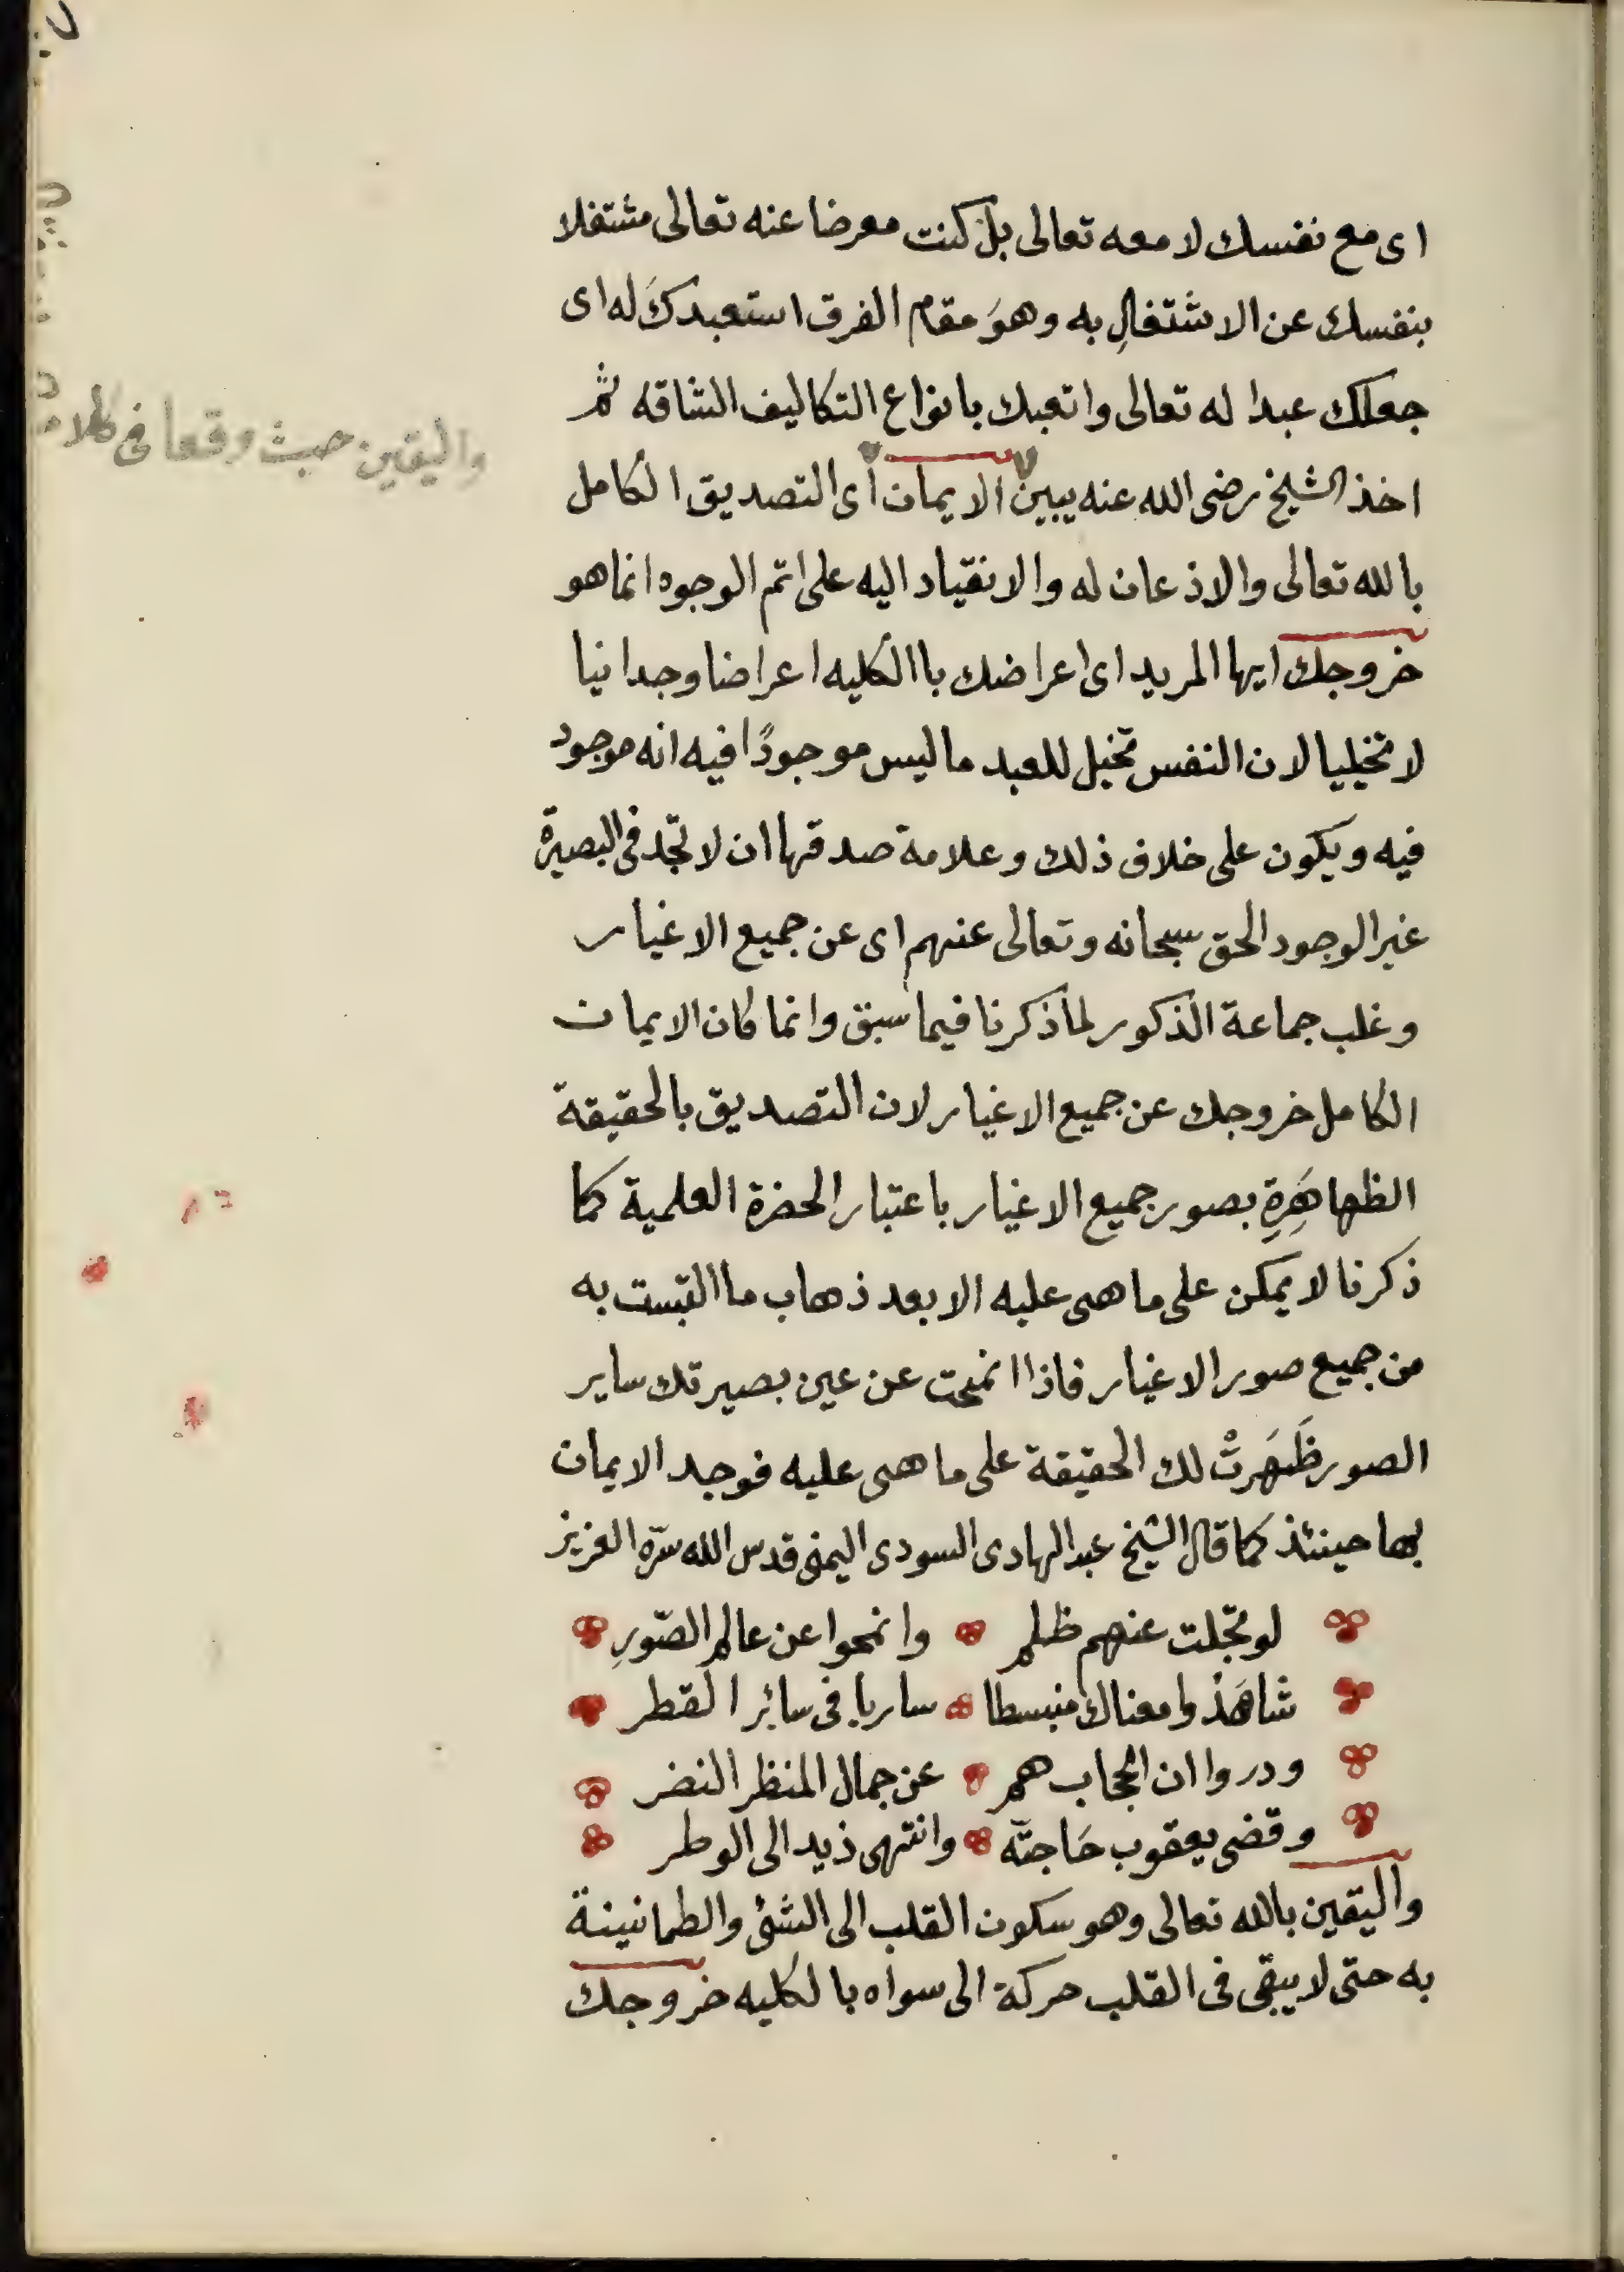 اى مع نفسك لا معه تعالى بل كنت معرضا عنه تعالى مشتغلا
بنفسك عن الاشتغالِ به وهوَ مقام الفرق استعبدكَ له اى
جعلك عبدا له تعالى واتعبك بانواع التكاليف الشاقه ثم
اخذ الشيخ رضى الله عنه يبين الايمان اى التصديق الكامل
والیقین حيث وقعا فى كلام
بالله تعالى والاذعان له والانقياد اليه على اتم الوجوه انما هو
خروجك ايها المريد اى اعراضك باالكليه اعراضا وجدانيا
لا تخيليا لان النفس تخيل للعبد ما ليس موجودًا فيه انه موجود
فيه ويكون على خلاف ذلك وعلامة صدقها ان لا تجد فى البصيرة
غير الوجود الحق سبحانه وتعالى عنهم اى عن جميع الاغيار
وغلب جماعة الذكور لما ذكرنا فيما سبق وانما كان الايمان
الكامل خروجك عن جميع الاغيار لان التصديق بالحقيقة
الظهاهَرِةِ بصور جميع الاغيار باعتبار الحضرة العلمية كما
ذكرنا لا يمكن على ما هى عليه الا بعد ذهاب ما التبست به
من جميع صور الاغيار فاذا انمحت عن عين بصيرتك ساير
الصور ظَهَرتْ لك الحقيقة على ما هى عليه فوجد الايمان
بها حينئذ كما قال الشيخ عبد الهادى السودى اليمنى قدس الله سّره العزيز
لو تجّلت عنهم ظلم وانمحوا عن عالم الصّورِ
شاهَدْوا معناك منبسطا ساريا فى سائر القطر
ودروا ان الحجاب هم عن جمال المنظر النضر
وقضى يعقوب حَاجتّه وانتهى زيد الى الوطر
واليقين بالله تعالى وهو سكون القلب الى الشئ والطمانينة
به حتى لا يبقى فى القلب حركة الى سواه بالكليه خروجك